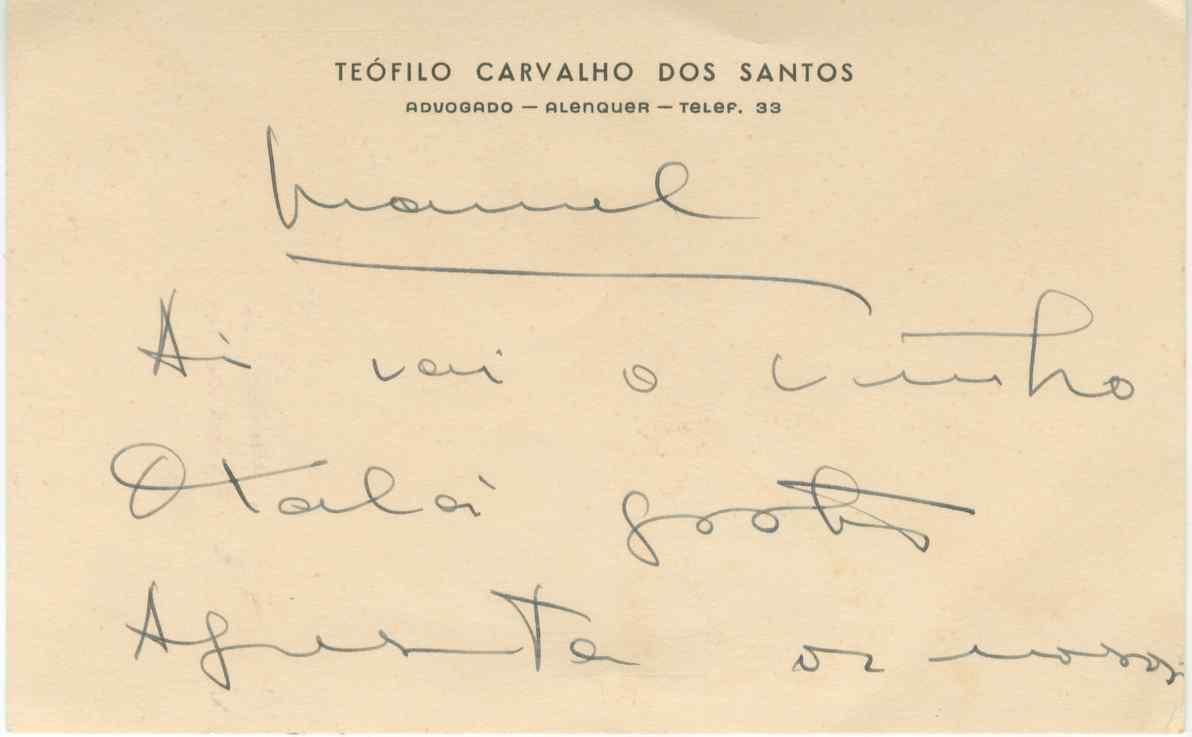 TEÓFILO CARVALHO DOS SANTOS
ADVOGADO — ALENQUER — TELEF. 33
Manuel
Ai vai o vinho
Oxalá gostes
Apresenta os nossos